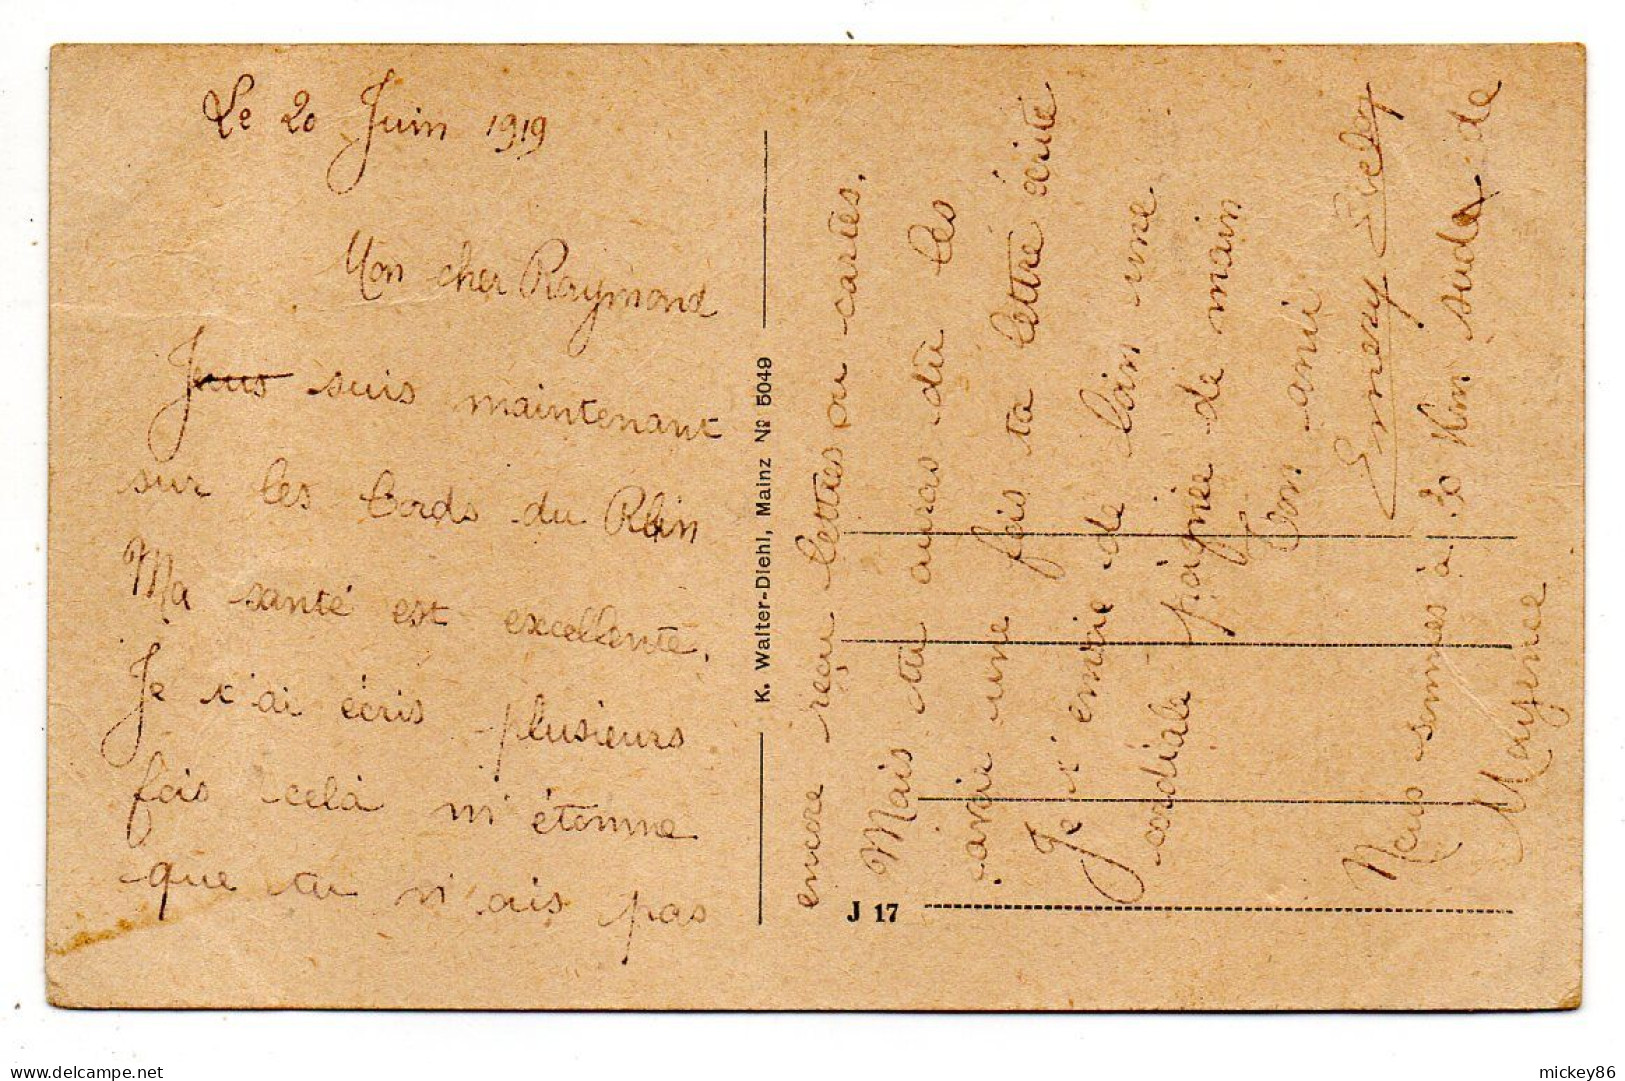 Le 20 Juin 1919
Mon cher Raymond
Je suis maintenant
sur les bords du Rhin
Ma santé est excellente.
Je t'ai écris plusieurs
fois celà m'étonne
que tu n'ais pas
K. Walter-Diehl, Mainz Nº 5049
encore reçu lettres ou cartes.
Mais tu auras dû les
avoir une fois ta lettre écrite
Je t'envoie de loin une
cordiale poignée de main
Ton ami
Emery
Nous sommes à 30 Km sud de
Mayence
J 17
mickey86